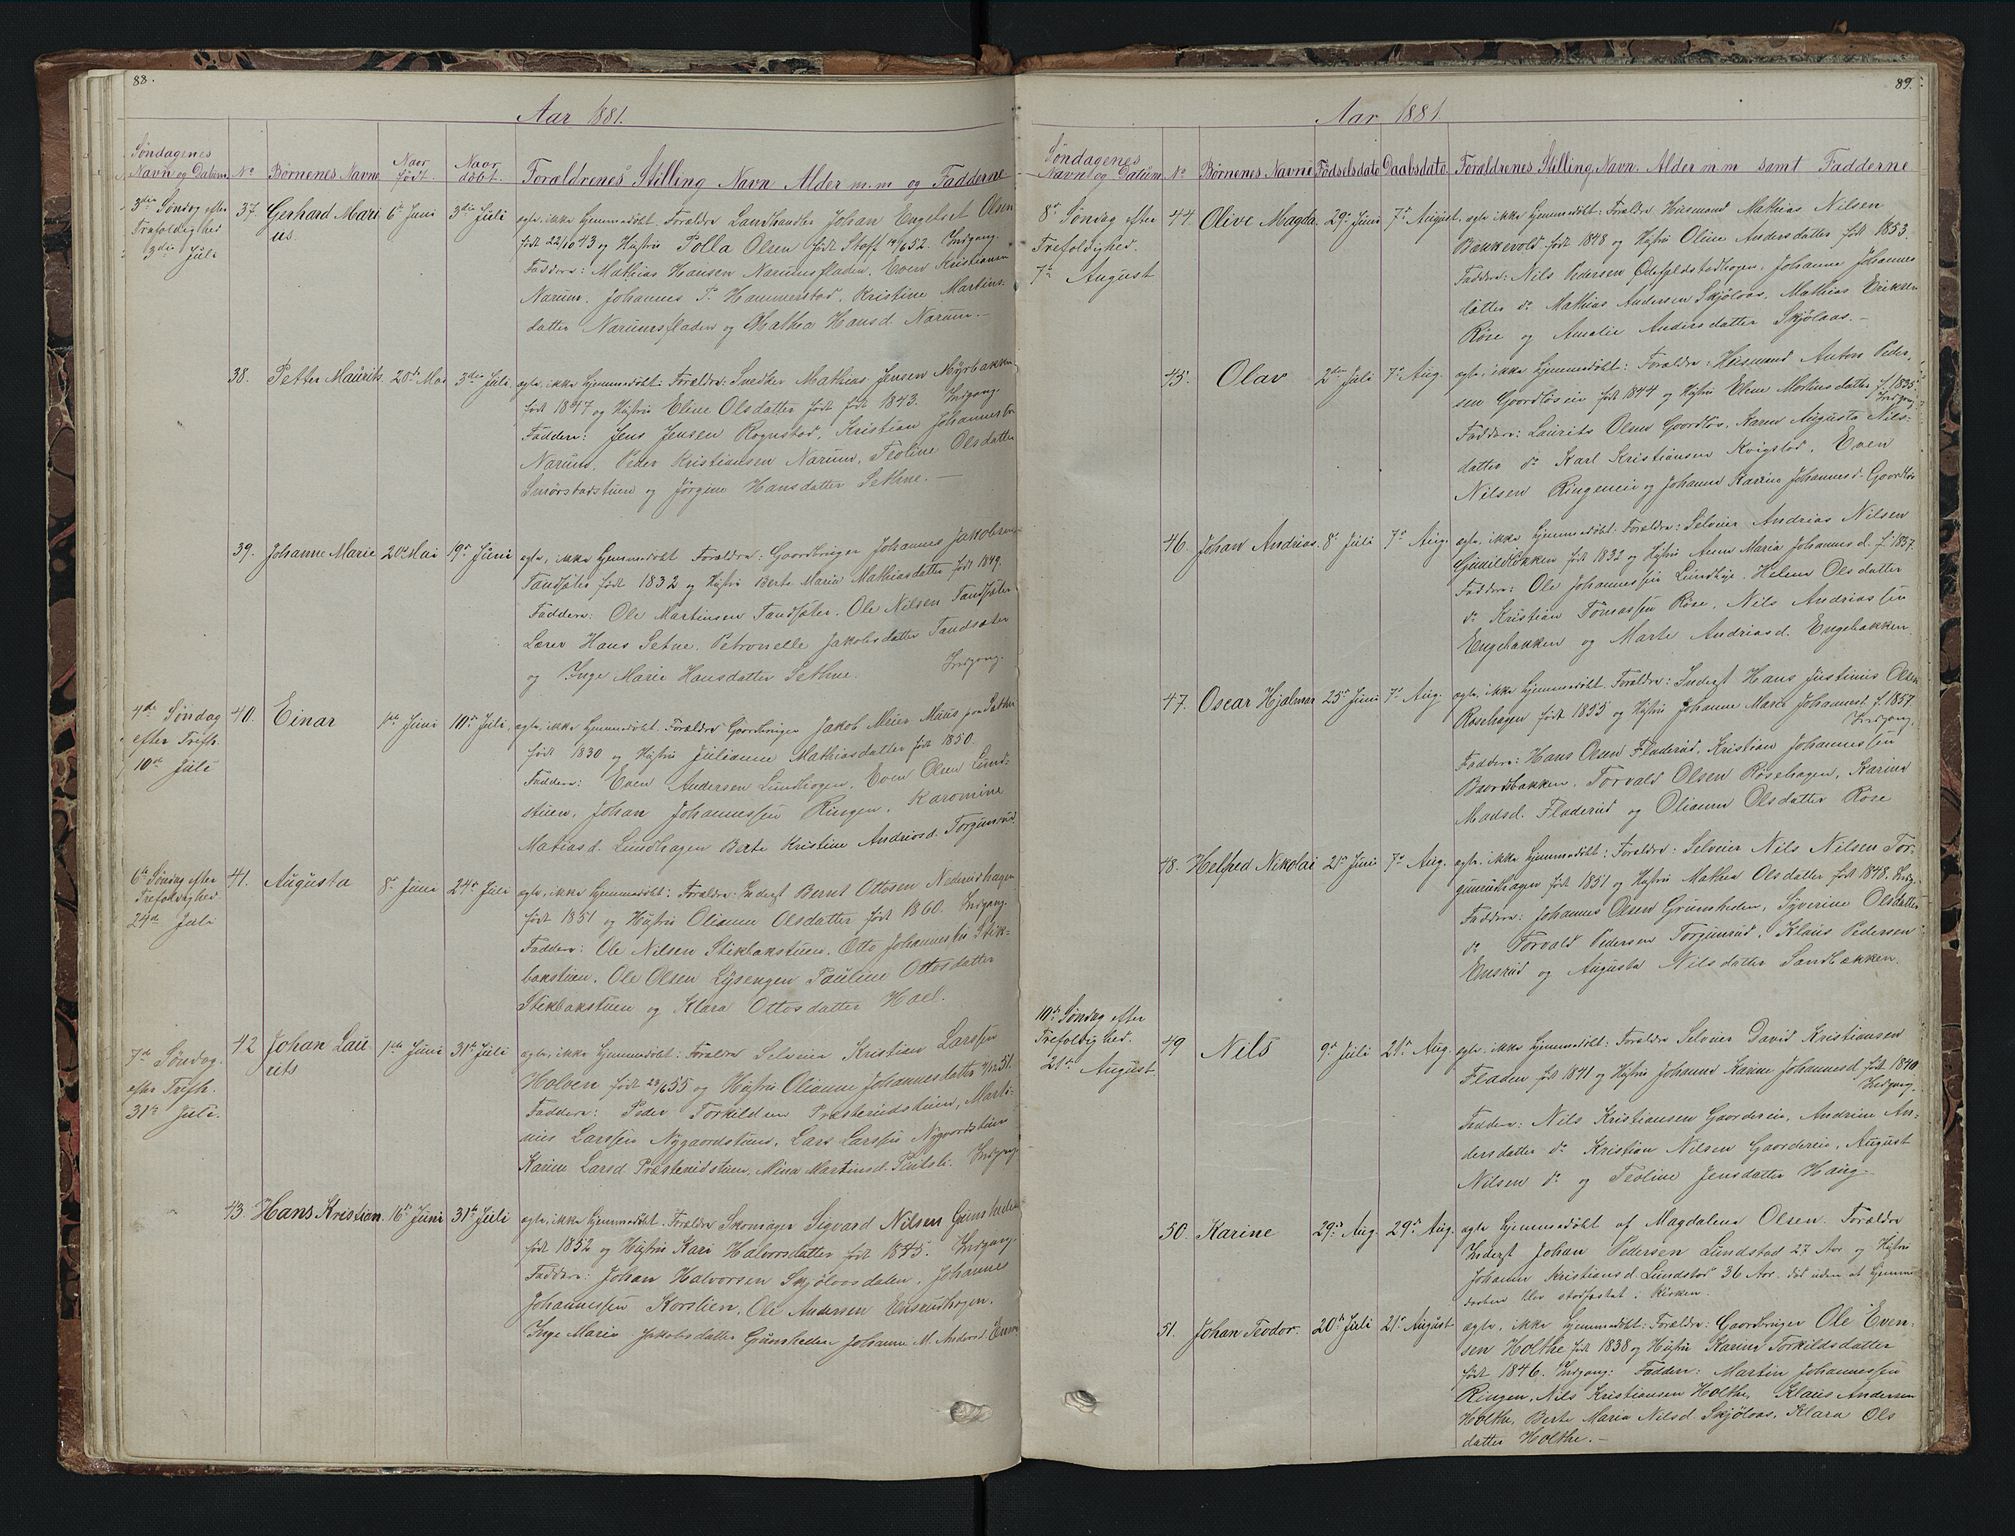 88.
Aar 1881.
Søndagenes Navn og Datum
No
Børnenes Navn
Naar født.
Naar døbt.
Forældrenes Stilling Navn Alder m.m og Fadderne
3die Søndag efter
Trefoldighed
3die Juli
37. Gerhard Marius. 6te Juni 3die Juli
ægte, ikke hjemmedøbt. Forældre Landhandler Johan Engelset Olsen
født 22/10 43 og Hustru Polla Olsen født Stoff 14/6 52. Indgang.
Faddere: Mathias Hansen Narumsfladen, Even Kristiansen
Narum. Johannes P. Hammerstad, Kristine Martins-
datter Narumsfladen og Mathea Hansd. Narum.—
38. Petter Maurits. 20de Mai 3die Juli.
ægte, ikke hjemmedøbt. Forældre: Snedker Mathias Jensen Myrbakken
født 1847 og Hustru Eline Olsdatter født født 1843. Indgang.
Faddere: Jens Jensen Rognstad, Kristian Johannessen
Narum, Peder Kristiansen Narum, Teoline Olsdatter
Smørstadstuen og Jørgine Hansdatter Sethne.—
39. Johanne Marie 20de Mai 19de Juni
ægte, ikke hjemmedøbt. Forældre: Gaardbruger Johannes Jakobsen
Tandsæter født 1832 og Hustru Berte Marie Mathiasdatter født 1849.
Faddere: Ole Martinsen Tandsæter, Ole Nilsen Tandsæter
Lærer Hans Setne, Petronelle Jakobsdatter Tandsæter
og Inge Marie Hansdatter Sethne. Indgang.
4de Søndag
efter Trefh.
10de Juli
40. Einar 1ste Juni 10de Juli.
ægte, ikke hjemmedøbt. Forældre Gaardbruger Jakob Meier
født 1830 og Hustru Julianne Mathiasdatter født 1850.
Faddere: Even Andersen Lundhagen, Even Olsen Lund-
stuen, Johan Johannessen Ringen, Karomine
Matiasd. Lundhagen Berte Kristine Andriasd. Torgunrud
6te Søndag efter
Trefoldighed
24de Juli
41. Augusta 8de Juni 24de Juli
ægte, ikke hjemmedøbt: Forældre: Inderst Bernt Ottosen Nederudhagen
født 1851 og Hustru Olianne Olsdatter født 1860. Indgang.
Faddere: Ole Nilsen Stikbakstuen, Otto Johannessen Stik-
bakstuen, Ole Olsen Lysengen Pauline Ottosdatter
Stikbakstuen og Klara Ottosdatter Hoel.
7de Søndag
efter Trefh.
31te Juli.
42 Johan Laurits 1ste Juni 31te Juli
ægte, ikke hjemmedøbt: Forældre Selveier Kristian Larsen
Holven født 23/6 55 og Hustru Olianne Johannesdatter 2/12 51.
Faddere: Peder Torkildsen Præsterudstuen, Marti-
nus Larsen Nygaardstuen, Lars Larsen Nygaardstuen
Karine Larsd. Præsterudstuen, Mina Martinsd. Indgang
43. Hans Kristian. 16de Juni 31te Juli
ægte, ikke hjemmedøbt. Forældre Skomager Sigvard Nilsen Grimsheden
født 1852 og Hustru Kari Halvorsdatter født 1845. Indgang.
Faddere: Johan Halvorsen Skjølaasdalen, Johannes
Johannessen Korslien, Ole Andersen Ensrudhagen.
Inge Marie Jakobsdatter Grimsheden Johanne M. Andersd.
89.
Aar 1881
Søndagenes Navn og Datum
No
Børnenes Navne
Fødselsdato
Daabsdato
Forældrenes Stilling, Navn, Alder m.m samt Fadderne
8de Søndag efter
Trefoldighed.
7de August
44. Olive Magda. 29de Juni 7de August.
ægte, ikke hjemmedøbt: Forældre Husmand Mathias Nilsen
Bænkevold født 1848 og Hustru Oline Andersdatter født 1853.
Faddere: Nils Pedersen Ødefjeldstadhagen, Johanne Johannes
datter do Mathias Andersen Skjølaas, Mathias Eriksen
Røse og Amalie Andersdatter Skjølaas.—
45. Olav 2den Juli 7de Aug.
ægte, ikke hjemmedøbt: Forældre: Husmand Anton Peder-
sen Gaardløseie født 1844 og Hustru Elene Martinsdatter f. 1835 Indgang.
Faddere: Laurits Olsen Gaardløs, Karen Augusta Nils-
datter do Karl Kristiansen Kvigstad, Even
Nilsen Ringeneie og Johanne Karine Johannesd. Gaardløs
46. Johan Andrias. 8de Juli 7de Aug.
ægte, ikke hjemmedøbt. Forældre: Selveier Andrias Nilsen
født 1832 og Hustru Anne Maria Johannesd. f. 1837.
Faddere: Ole Johannessen Lundbye, Helene Olsdatter
do Kristian Tomassen Røse, Nils Andriassen
Engebakken og Marte Andriasd. Engebakken.
47. Oscar Hjalmar 25de Juni 7de Aug.
ægte, ikke hjemmedøbt. Forældre: Inderst Hans Justinus Olsen
Røsehagen født 1855 og Hustru Johanne Marie Johannesd. f. 1857. Indgang.
Faddere: Hans Olsen Fladerud, Kristian Johannessen
Baardsbakken, Torvald Olsen Røsehagen, Karine
Madsd. Fladerud og Olianne Olsdatter Røse
48. Helfred Nikolai 21de Juni 7de Aug.
ægte, ikke hjemmedøbt: Forældre: Selveier Nils Nilsen Tor-
gunrudhagen født 1851 og Hustru Mathea Olsdatter født 1848. Indg.
Faddere: Johannes Olsen Grimsheden, Syverine Olsdatter
do Torvald Pedersen Torgunrud, Klaus Pedersen
Ensrud og Augusta Nilsdatter Sandbækken.
10de Søndag efter
Trefoldighed.
21de August.
49 Nils 9de Juli 21de Aug.
ægte, ikke hjemmedøbt: Forældre Selveier David Kristiansen
Fladen født 1841 og Hustru Johanne Karine Johannesd. født 1840 Indgang.
Faddere: Nils Kristiansen Gaardereie, Andrine An-
dersdatter do Kristian Nilsen Gaardereie, August
Nilsen do og Teoline Jensdatter Haug.
50. Karine 29de Aug. 29de Aug.
ægte hjemmedøbt af Magdalena Olsen. Forældre
Inderst Johan Pedersen Lundstad 27 Aar og Hustru
Johanne Kristiansd. Lundstad 36 Aar. død uden at hjemme
daaben blev stadfæstet i Kirken.
51. Johan Teodor. 20de Juli 21de August
ægte, ikke hjemmedøbt: Forældre: Gaardbruger Ole Even-
sen Holthe født 1838 og Hustru Karine Torkildsdatter
født 1846. Indgang: Faddere: Martin Johannessen
Ringen, Nils Kristiansen Holthe, Klaus Andersen
Holthe, Berte Marie Nilsd. Skjølaas, Klara Ols
datter Holthe.—